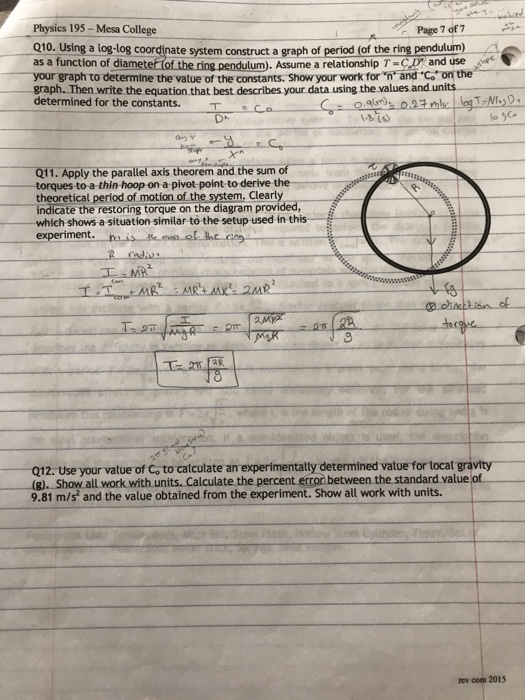 Physics 195 – Mesa College
Page 7 of 7
Q10. Using a log-log coordinate system construct a graph of period (of the ring pendulum)
as a function of diameter (of the ring pendulum). Assume a relationship T = C₀Dⁿ and use
slope
your graph to determine the value of the constants. Show your work for "n" and "C₀" on the
graph. Then write the equation that best describes your data using the values and units
determined for the constants.
T/Dⁿ = C₀
C₀ =
0.27 m/s
log T = N log D +
log C₀
y/xⁿ = C₀
Q11. Apply the parallel axis theorem and the sum of
torques to a thin hoop on a pivot point to derive the
theoretical period of motion of the system. Clearly
indicate the restoring torque on the diagram provided,
which shows a situation similar to the setup used in this
experiment. m is the mass of the ring
R radius
R
I = MR²
com
I = I com + MR² = MR² + MR² = 2MR²
Fg
⊗ direction of
torque
T = 2π √(I/MgR) = 2π √(2MR²/MgR) = 2π √(2R/g)
T = 2π √(2R/g)
Q12. Use your value of C₀ to calculate an experimentally determined value for local gravity
(g). Show all work with units. Calculate the percent error between the standard value of
9.81 m/s² and the value obtained from the experiment. Show all work with units.
rev com 2015